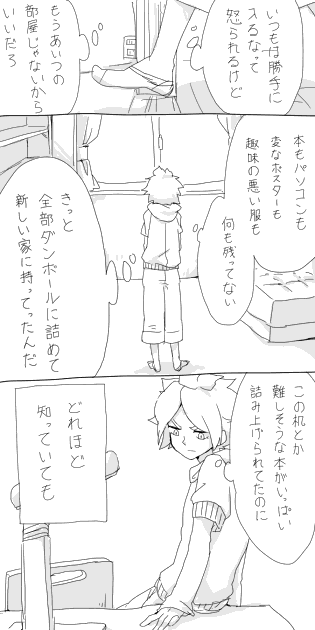 いつもは勝手に
入るなって
怒られるけど
もうあいつの
部屋じゃないから
いいだろ
本もパソコンも
変なポスターも
趣味の悪い服も
何も残ってない
きっと
全部ダンボールに詰めて
新しい家に持ってったんだ
この机とか
難しそうな本がいっぱい
詰み上げられてたのに
どれほど
知っていても